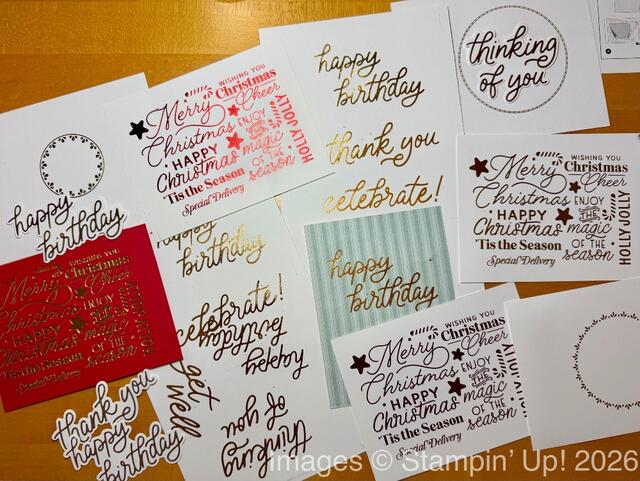 happy
birthday
thank you
celebrate!
thinking
of you
WISHING YOU
Merry Christmas
Cheer
Christmas
HAPPY
Christmas magic
OF THE
'Tis the Season season
Special Delivery
HOLLY JOLLY
happy
birthday
WISHING YOU
Merry Christmas
Cheer
Christmas ENJOY
HAPPY THE
Christmas magic
OF THE
'Tis the Season season
Special Delivery
HOLLY JOLLY
WISHING YOU
Christmas
Merry Cheer
Christmas ENJOY
HAPPY
Christmas magic
OF THE
'Tis the Season season
Special Delivery
HOLLY JOLLY
birthday
celebrate!
happy
birthday
get
well
thinking
of you
happy
birthday
WISHING YOU
Merry Christmas
Cheer
Christmas ENJOY
HAPPY THE
Christmas magic
OF THE
'Tis the Season season
Special Delivery
thank you
happy
birthday
Images © Stampin' Up! 2026